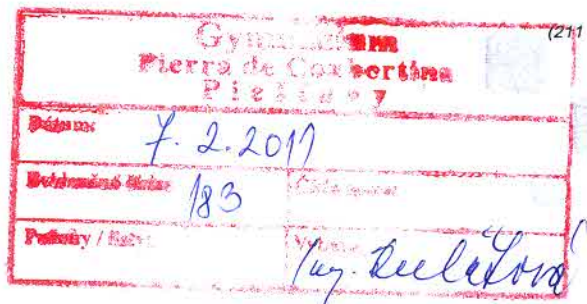 (211
Gymnázium
Pierra de Coubertina
Piešťany
Dátum:
7. 2. 2017
Evidenčné číslo:
183
Číslo spisu:
Prílohy / listy:
Vybavuje:
Ing.